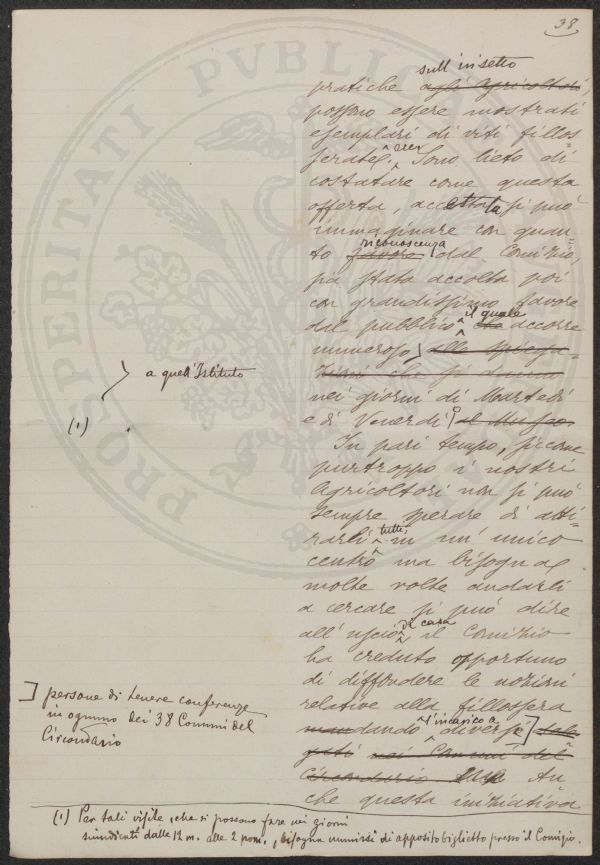 38
sull'insetto
pratiche agli agricoltori,
possono essere mostrati
esemplari di viti fillos=
serate. Sono lieto di
costatare come questa
offerta, accettata si può
immaginare con quan
to favore riconoscenza dal Comizio,
sia stata accolta poi
con grandissimo favore
dal pubblico che il quale accorre
numeroso alle spiega=
zioni che si danno
a quell'Istituto
nei giorni di Martedì
e di Venerdì il Museo.
(1)
In pari tempo, siccome
purtroppo i nostri
Agricoltori non si può
sempre sperare di atti=
rarli tutti in un' unico
centro ma bisogna
molte volte andarli
a cercare si può dire
all' uscio di casa il Comizio
ha creduto opportuno
di diffondere le nozioni
relative alla fillossera
mandando l'incarico a diverse
persone di tenere conferenze
in ognuno dei 38 Comuni del
Circondario
nei Comuni del
Circondario An
che questa iniziativa
(1) Per tali visite, che si possono fare nei giorni
suindicati dalle 12 m. alle 2 pom., bisogna munirsi di apposito biglietto presso il Comizio.
PROSPERITATI PVBLICA